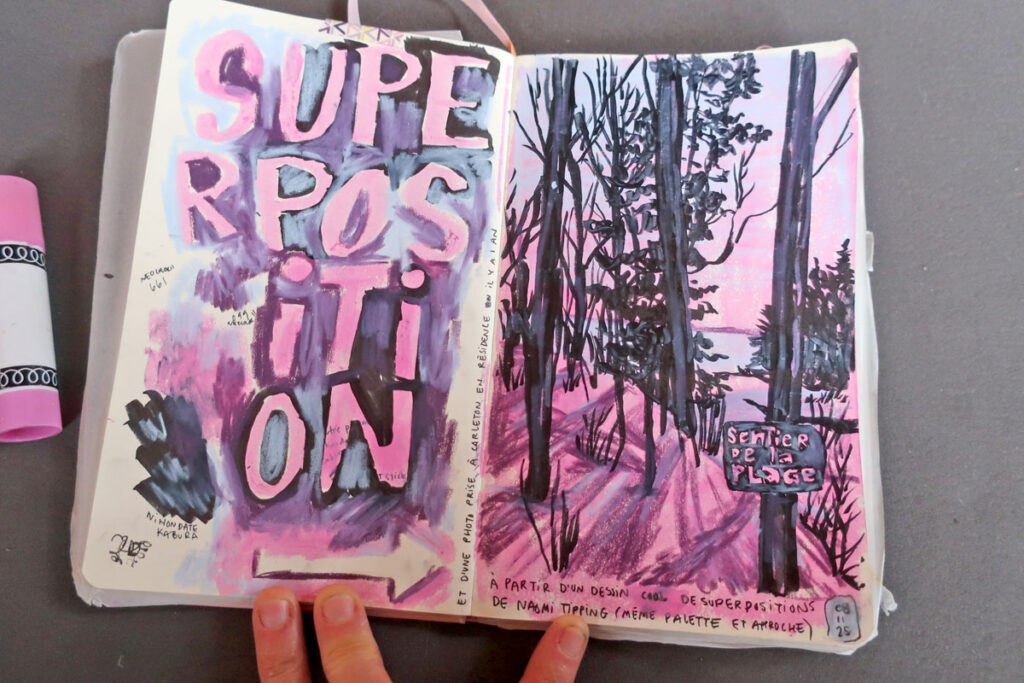 SUPE
RPOS
iTi
ON
NEOCOLOR
661
NiHONDATE
KABURA
ET D'UNE PHOTO PRISE À CARLETON EN RÉSIDENCE IL Y A 1 AN
SENTiER
DE la
PLAGE
À PARTIR D'UN DESSIN COOL DE SUPERPOSITIONS
DE NAOMI TIPPING (MÊME PALETTE ET APPROCHE)
08
11
25